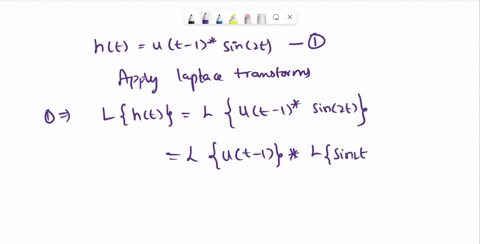 h(t) = u(t-1)* sin(2t) — ①
Apply laplace transforms
①⇒ L{h(t)} = L {u(t-1)* sin(2t)}
= L {u(t-1)} * L{sin2t